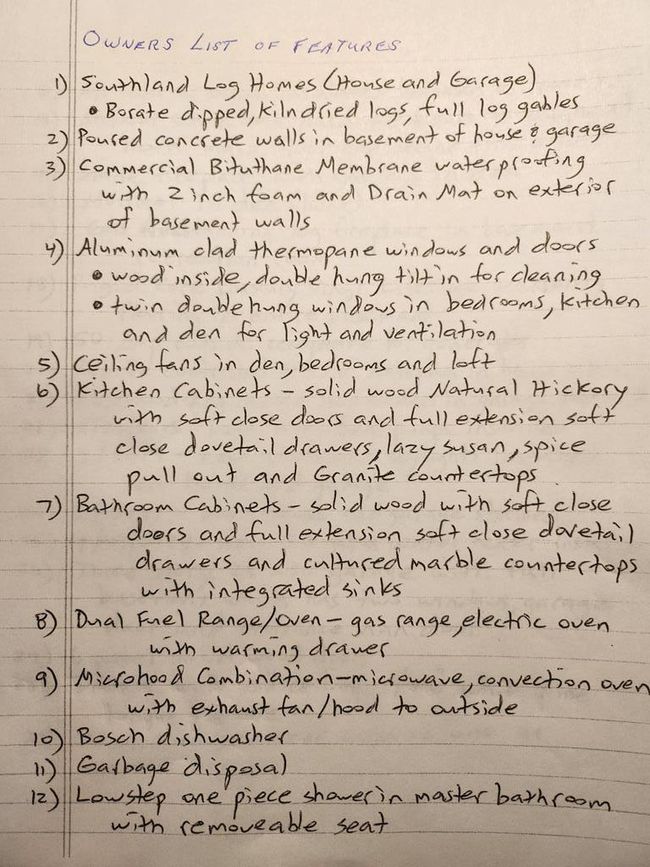 OWNERS LIST OF FEATURES
1) Southland Log Homes (House and Garage)
• Borate dipped, kilndried logs, full log gables
2) Poured concrete walls in basement of house & garage
3) Commercial Bituthane Membrane waterproofing
with 2 inch foam and Drain Mat on exterior
of basement walls
4) Aluminum clad thermopane windows and doors
• wood inside, double hung tilt in for cleaning
• twin double hung windows in bedrooms, kitchen
and den for light and ventilation
5) Ceiling fans in den, bedrooms and loft
6) Kitchen Cabinets – solid wood Natural Hickory
with soft close doors and full extension soft
close dovetail drawers, lazy susan, spice
pull out and Granite countertops
7) Bathroom Cabinets – solid wood with soft close
doors and full extension soft close dovetail
drawers and cultured marble countertops
with integrated sinks
8) Dual Fuel Range/Oven – gas range, electric oven
with warming drawer
9) Microhood Combination – microwave, convection oven
with exhaust fan/hood to outside
10) Bosch dishwasher
11) Garbage disposal
12) Lowstep one piece shower in master bathroom
with removeable seat